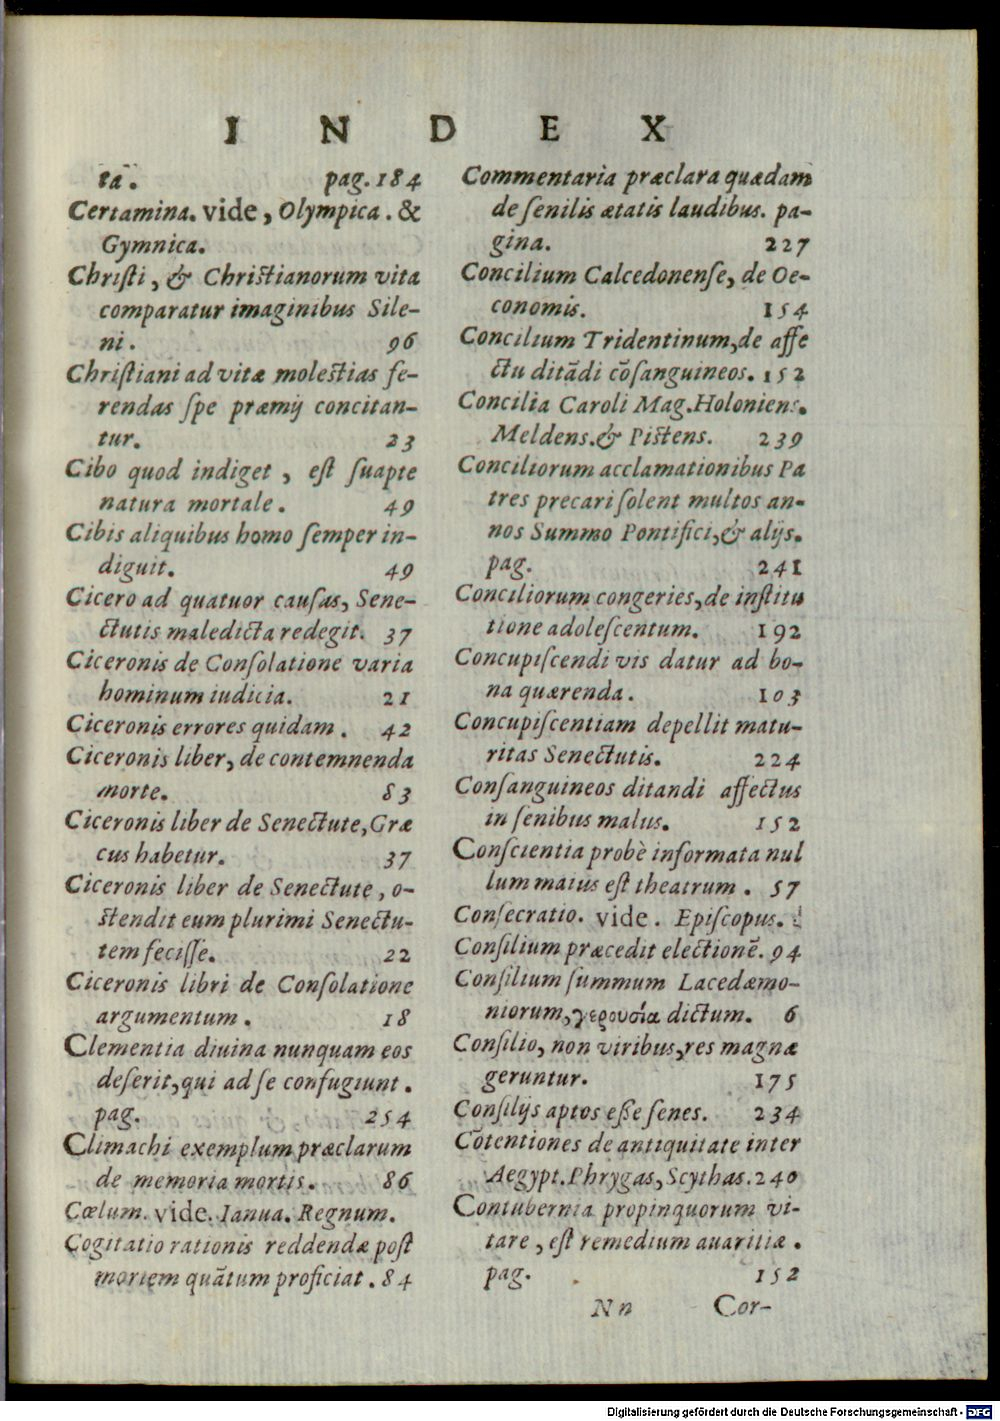 INDEX
ta. pag. 184
Certamina. vide, Olympica. &
Gymnica.
Chriſti, & Chriſtianorum vita
comparatur imaginibus Sile-
ni. 96
Chriſtiani ad vitæ moleſtias fe-
rendas ſpe præmij concitan-
tur. 23
Cibo quod indiget, eſt ſuapte
natura mortale. 49
Cibis aliquibus homo ſemper in-
diguit. 49
Cicero ad quatuor cauſas, Sene-
ctutis maledicta redegit. 37
Ciceronis de Conſolatione varia
hominum iudicia. 21
Ciceronis errores quidam. 42
Ciceronis liber, de contemnenda
morte. 83
Ciceronis liber de Senectute, Græ
cus habetur. 37
Ciceronis liber de Senectute, o-
ſtendit eum plurimi Senectu-
tem feciſſe. 22
Ciceronis libri de Conſolatione
argumentum. 18
Clementia diuina nunquam eos
deſerit, qui ad ſe confugiunt.
pag. 254
Climachi exemplum præclarum
de memoria mortis. 86
Cœlum. vide. Ianua. Regnum.
Cogitatio rationis reddendæ poſt
mortem quãtum proficiat. 84
Commentaria præclara quædam
de ſenilis ætatis laudibus. pa-
gina. 227
Concilium Calcedonenſe, de Oe-
conomis. 154
Concilium Tridentinum, de affe
ctu ditãdi cõſanguineos. 152
Concilia Caroli Mag. Holoniens.
Meldens. & Piſtens. 239
Conciliorum acclamationibus Pa
tres precari ſolent multos an-
nos Summo Pontifici, & alijs.
pag. 241
Conciliorum congeries, de inſtitu
tione adoleſcentum. 192
Concupiſcendi vis datur ad bo-
na quærenda. 103
Concupiſcentiam depellit matu-
ritas Senectutis. 224
Conſanguineos ditandi affectus
in ſenibus malus. 152
Conſcientia probè informata nul
lum maius eſt theatrum. 57
Conſecratio. vide. Epiſcopus.
Conſilium præcedit electionẽ. 94
Conſilium ſummum Lacedæmo-
niorum, γερουσία dictum. 6
Conſilio, non viribus, res magnæ
geruntur. 175
Conſilijs aptos eſſe ſenes. 234
Cõtentiones de antiquitate inter
Aegypt. Phrygas, Scythas. 240
Contubernia propinquorum vi-
tare, eſt remedium auaritiæ.
pag. 152
Nn Cor-
Digitalisierung gefördert durch die Deutsche Forschungsgemeinschaft - DFG